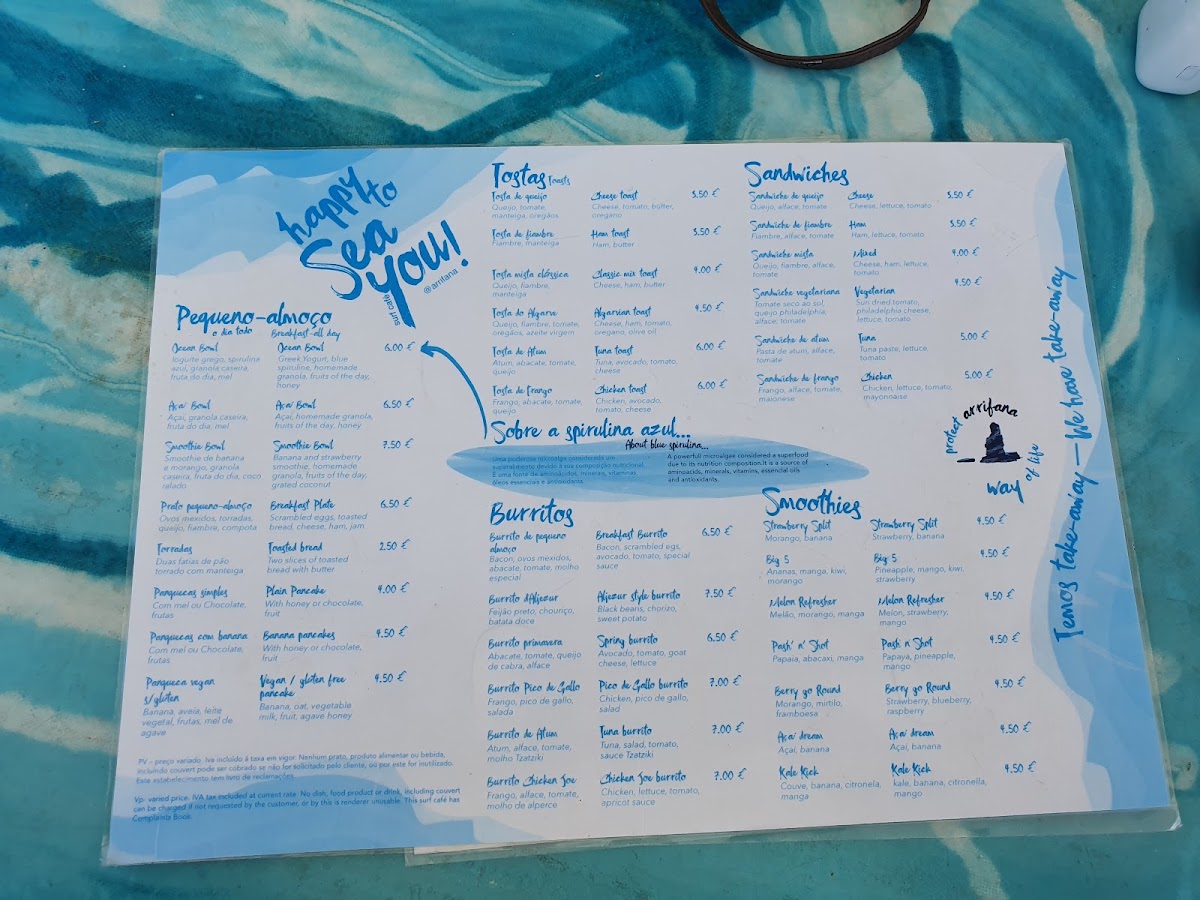 happy to
Sea
you!
surf café
@arrifana
Pequeno-almoço
o dia todo Breakfast-all day
Ocean Bowl Ocean Bowl 6.00 €
Iogurte grego, spirulina Greek Yogurt, blue
azul, granola caseira, spiruline, homemade
fruta do dia, mel granola, fruits of the day,
honey
Açaí Bowl Açaí Bowl 6.50 €
Açaí, granola caseira, Açaí, homemade granola,
fruta do dia, mel fruits of the day, honey
Smoothie Bowl Smoothie Bowl 7.50 €
Smoothie de banana Banana and strawberry
e morango, granola smoothie, homemade
caseira, fruta do dia, coco granola, fruits of the day,
ralado grated coconut
Prato pequeno-almoço Breakfast Plate 6.50 €
Ovos mexidos, torradas, Scrambled eggs, toasted
queijo, fiambre, compota bread, cheese, ham, jam
Torradas Toasted bread 2.50 €
Duas fatias de pão Two slices of toasted
torrado com manteiga bread with butter
Panquecas simples Plain Pancake 4.00 €
Com mel ou Chocolate, With honey or chocolate,
frutas fruit
Panquecas com banana Banana pancakes 4.50 €
Com mel ou Chocolate, With honey or chocolate,
frutas fruit
Panqueca vegan Vegan / gluten free 4.50 €
s/glúten pancake
Banana, aveia, leite Banana, oat, vegetable
vegetal, frutas, mel de milk, fruit, agave honey
agave
PV - preço variado. Iva incluído à taxa em vigor. Nenhum prato, produto alimentar ou bebida,
incluindo couvert pode ser cobrado se não for solicitado pelo cliente, ou por este for inutilizado.
Este estabelecimento tem livro de reclamações.
Vp- varied price. IVA tax included at current rate. No dish, food product or drink, including couvert
can be charged if not requested by the customer, or by this is renderer unusable. This surf café has
Complaints Book.
Tostas Toasts
Tosta de queijo Cheese toast 3.50 €
Queijo, tomate, Cheese, tomato, butter,
manteiga, oregãos oregano
Tosta de fiambre Ham toast 3.50 €
Fiambre, manteiga Ham, butter
Tosta mista clássica Classic mix toast 4.00 €
Queijo, fiambre, Cheese, ham, butter
manteiga
Tosta do Algarve Algarvian toast 4.50 €
Queijo, fiambre, tomate, Cheese, ham, tomato,
oregãos, azeite virgem oregano, olive oil
Tosta de Atum Tuna toast 6.00 €
Atum, abacate, tomate, Tuna, avocado, tomato,
queijo cheese
Tosta de Frango Chicken toast 6.00 €
Frango, abacate, tomate, Chicken, avocado,
queijo tomato, cheese
Sobre a spirulina azul...
About blue spirulina...
Uma poderosa microalga considerada um
superalimento devido à sua composição nutricional.
É uma fonte de aminoácidos, minerais, vitaminas,
óleos essenciais e antioxidantes.
A powerfull microalgae considered a superfood
due to its nutrition composition.It is a source of
aminoacids, minerals, vitamins, essencial oils
and antioxidants.
Burritos
Burrito de pequeno Breakfast Burrito 6.50 €
almoço Bacon, scrambled egs,
Bacon, ovos mexidos, avocado, tomato, special
abacate, tomate, molho sauce
especial
Burrito dAljezur Aljezur style burrito 7.50 €
Feijão preto, chouriço, Black beans, chorizo,
batata doce sweet potato
Burrito primavera Spring burrito 6.50 €
Abacate, tomate, queijo Avocado, tomato, goat
de cabra, alface cheese, lettuce
Burrito Pico de Gallo Pico de Gallo burrito 7.00 €
Frango, pico de gallo, Chicken, pico de gallo,
salada salad
Burrito de Atum Tuna burrito 7.00 €
Atum, alface, tomate, Tuna, salad, tomato,
molho Tzatziki sauce Tzatziki
Burrito Chicken Joe Chicken Joe burrito 7.00 €
Frango, alface, tomate, Chicken, lettuce, tomato,
molho de alperce apricot sauce
Sandwiches
Sandwiche de queijo Cheese 3.50 €
Queijo, alface, tomate Cheese, lettuce, tomato
Sandwiche de fiambre Ham 3.50 €
Fiambre, alface, tomate Ham, lettuce, tomato
Sandwiche mista Mixed 4.00 €
Queijo, fiambre, alface, Cheese, ham, lettuce,
tomate tomato
Sandwiche vegetariana Vegetarian 4.50 €
Tomate seco ao sol, Sun dried tomato,
queijo philadelphia, philadelphia cheese,
alface, tomate lettuce, tomato
Sandwiche de atum Tuna 5.00 €
Pasta de atum, alface, Tuna paste, lettuce,
tomate tomato
Sandwiche de frango Chicken 5.00 €
Frango, alface, tomate, Chicken, lettuce, tomato,
maionese mayonnaise
protect arrifana
way of life
Smoothies
Strawberry Split Strawberry Split 4.50 €
Morango, banana Strawberry, banana
Big 5 Big 5 4.50 €
Ananas, manga, kiwi, Pineapple, mango, kiwi,
morango strawberry
Melon Refresher Melon Refresher 4.50 €
Melão, morango, manga Melon, strawberry,
mango
Pash' n' Shot Pash n' Shot 4.50 €
Papaia, abacaxi, manga Papaya, pineapple,
mango
Berry go Round Berry go Round 4.50 €
Morango, mirtilo, Strawberry, blueberry,
framboesa raspberry
Açaí dream Açaí dream 4.50 €
Açaí, banana Açaí, banana
Kale Kick Kale Kick 4.50 €
Couve, banana, citronela, kale, banana, citronella,
manga mango
Temos take-away – We have take-away